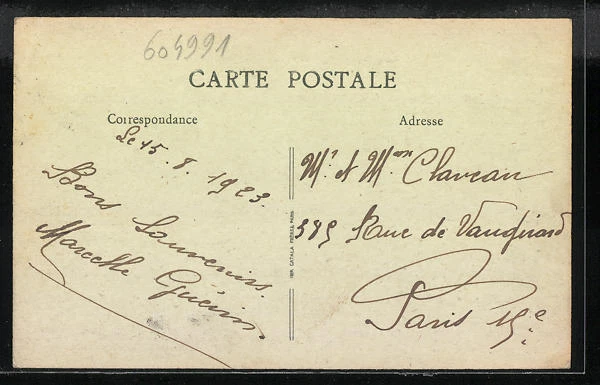 604991
CARTE POSTALE
Correspondance
Le 15.8.1923.
Bons Souvenirs.
Marcelle Guérin.
IMP. CATALA FRÈRES, PARIS
Adresse
Mr. et Mme Claveau
389 Rue de Vaugirard
Paris 15e.